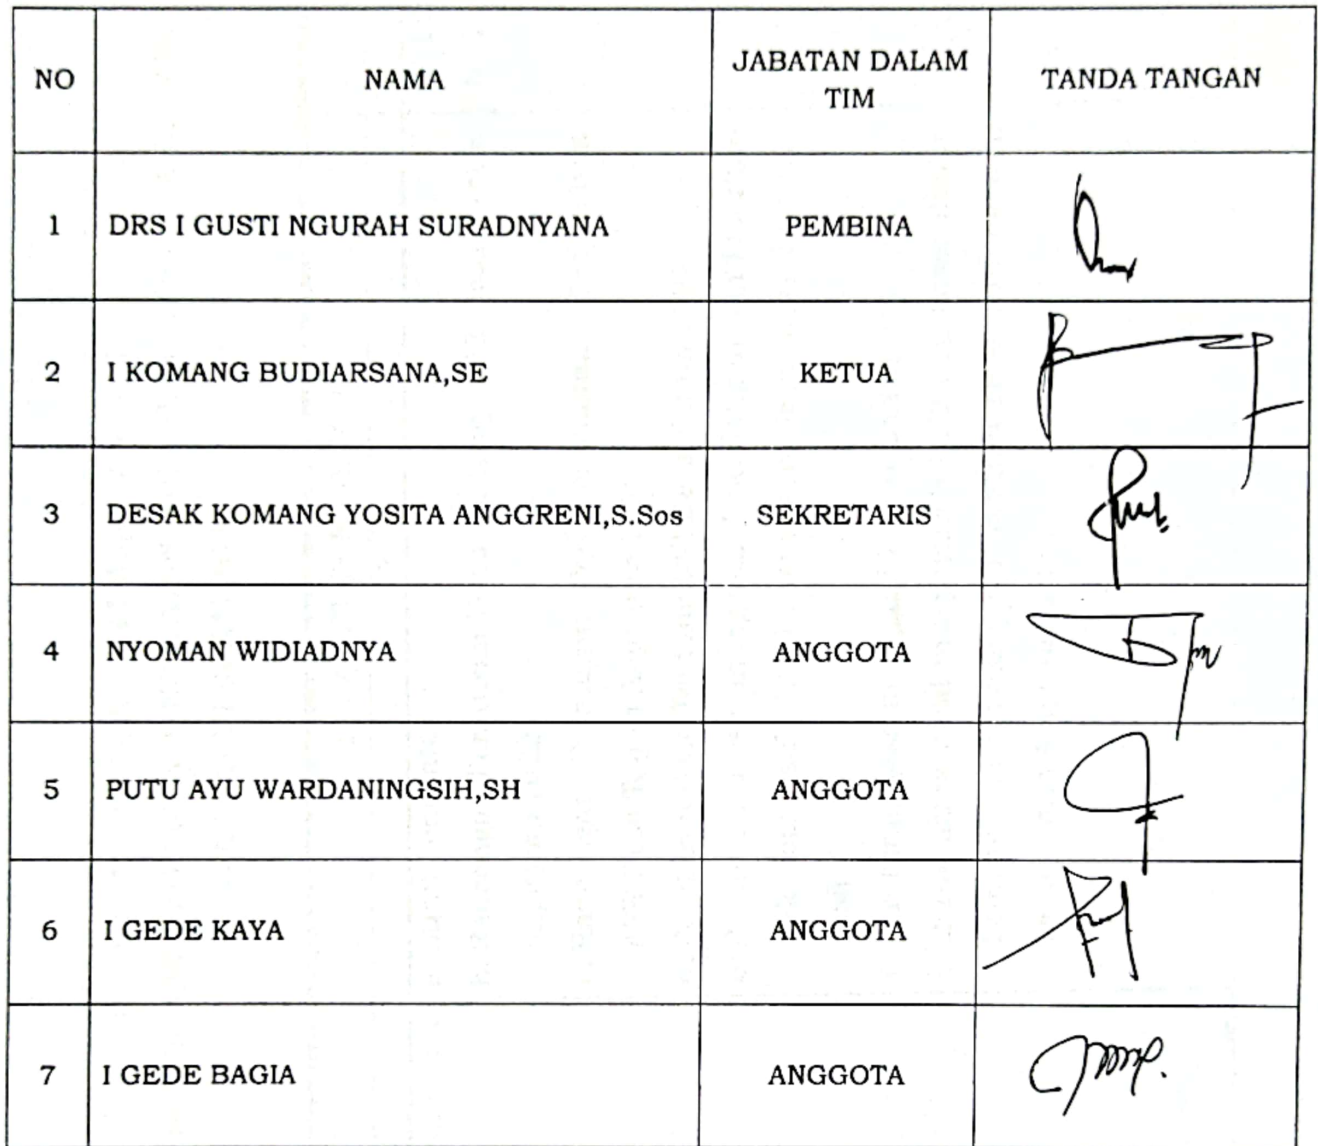 NO NAMA JABATAN DALAM TIM TANDA TANGAN
1 DRS I GUSTI NGURAH SURADNYANA PEMBINA
2 I KOMANG BUDIARSANA,SE KETUA
3 DESAK KOMANG YOSITA ANGGRENI,S.Sos SEKRETARIS
4 NYOMAN WIDIADNYA ANGGOTA
5 PUTU AYU WARDANINGSIH,SH ANGGOTA
6 I GEDE KAYA ANGGOTA
7 I GEDE BAGIA ANGGOTA